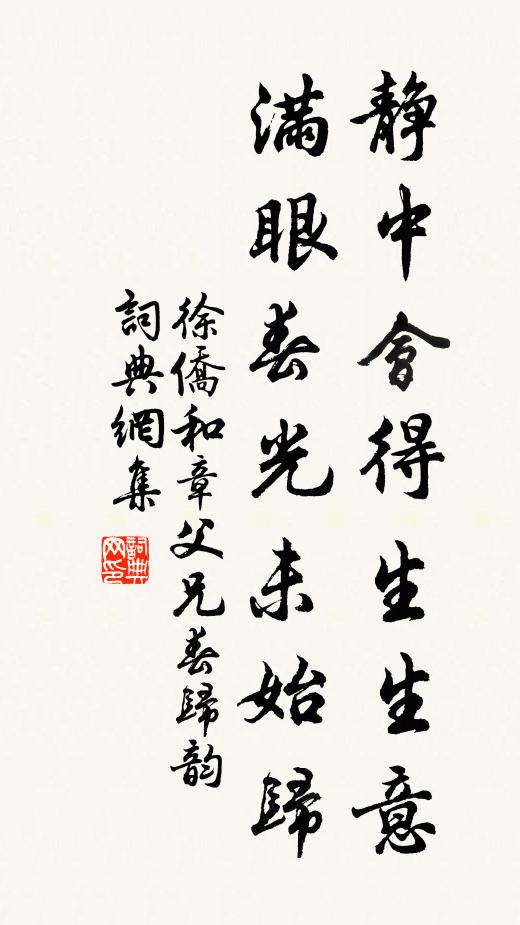 静中會得生生意
滿眼春光未始歸
徐僑和章父兄春歸韵
詞典網集
詞典網印